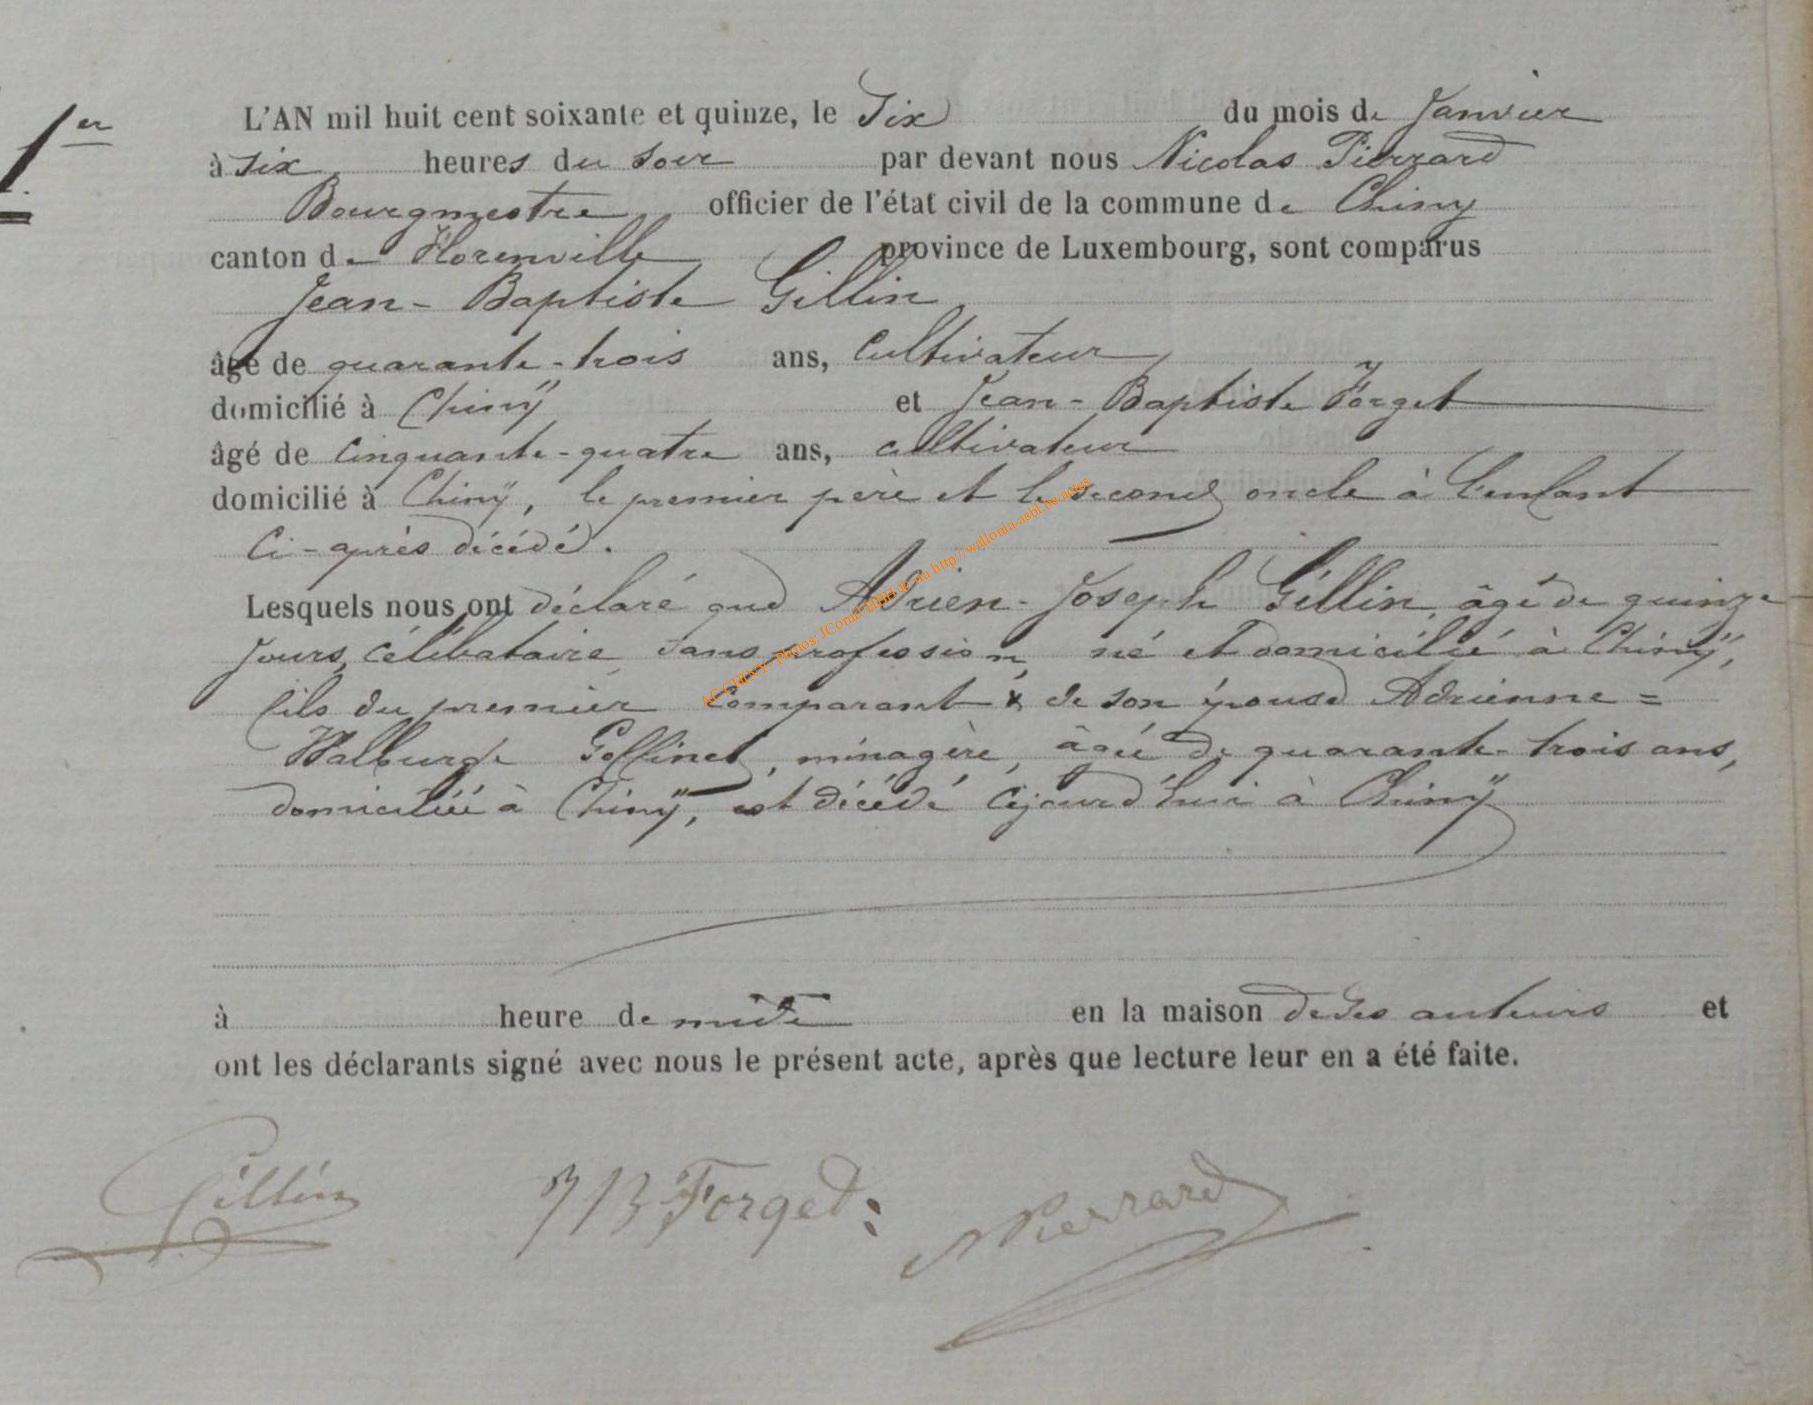 1er
L'AN mil huit cent soixante et quinze, le Six du mois de Janvier
à six heures du soir par devant nous Nicolas Pierrard
Bourgmestre officier de l'état civil de la commune de Chiny
canton de Florenville province de Luxembourg, sont comparus
Jean-Baptiste Gillin
âgé de quarante-trois ans, cultivateur,
domicilié à Chinÿ et Jean-Baptiste Forget
âgé de cinquante-quatre ans, cultivateur
domicilié à Chinÿ, le premier père et le second oncle à l'enfant
ci-après décédé.
Lesquels nous ont déclaré que Adrien-Joseph Gillin, âgé de quinze
jours, célibataire sans profession, né et domicilié à Chinÿ,
fils du premier comparant & de son épouse Adrienne=
Walburge Goffinet, ménagère, âgée de quarante-trois ans,
domiciliée à Chinÿ, est décédé cejourd'hui à Chinÿ
à heure de midi en la maison de ses auteurs et
ont les déclarants signé avec nous le présent acte, après que lecture leur en a été faite.
Gillin JB Forget: NPierrard